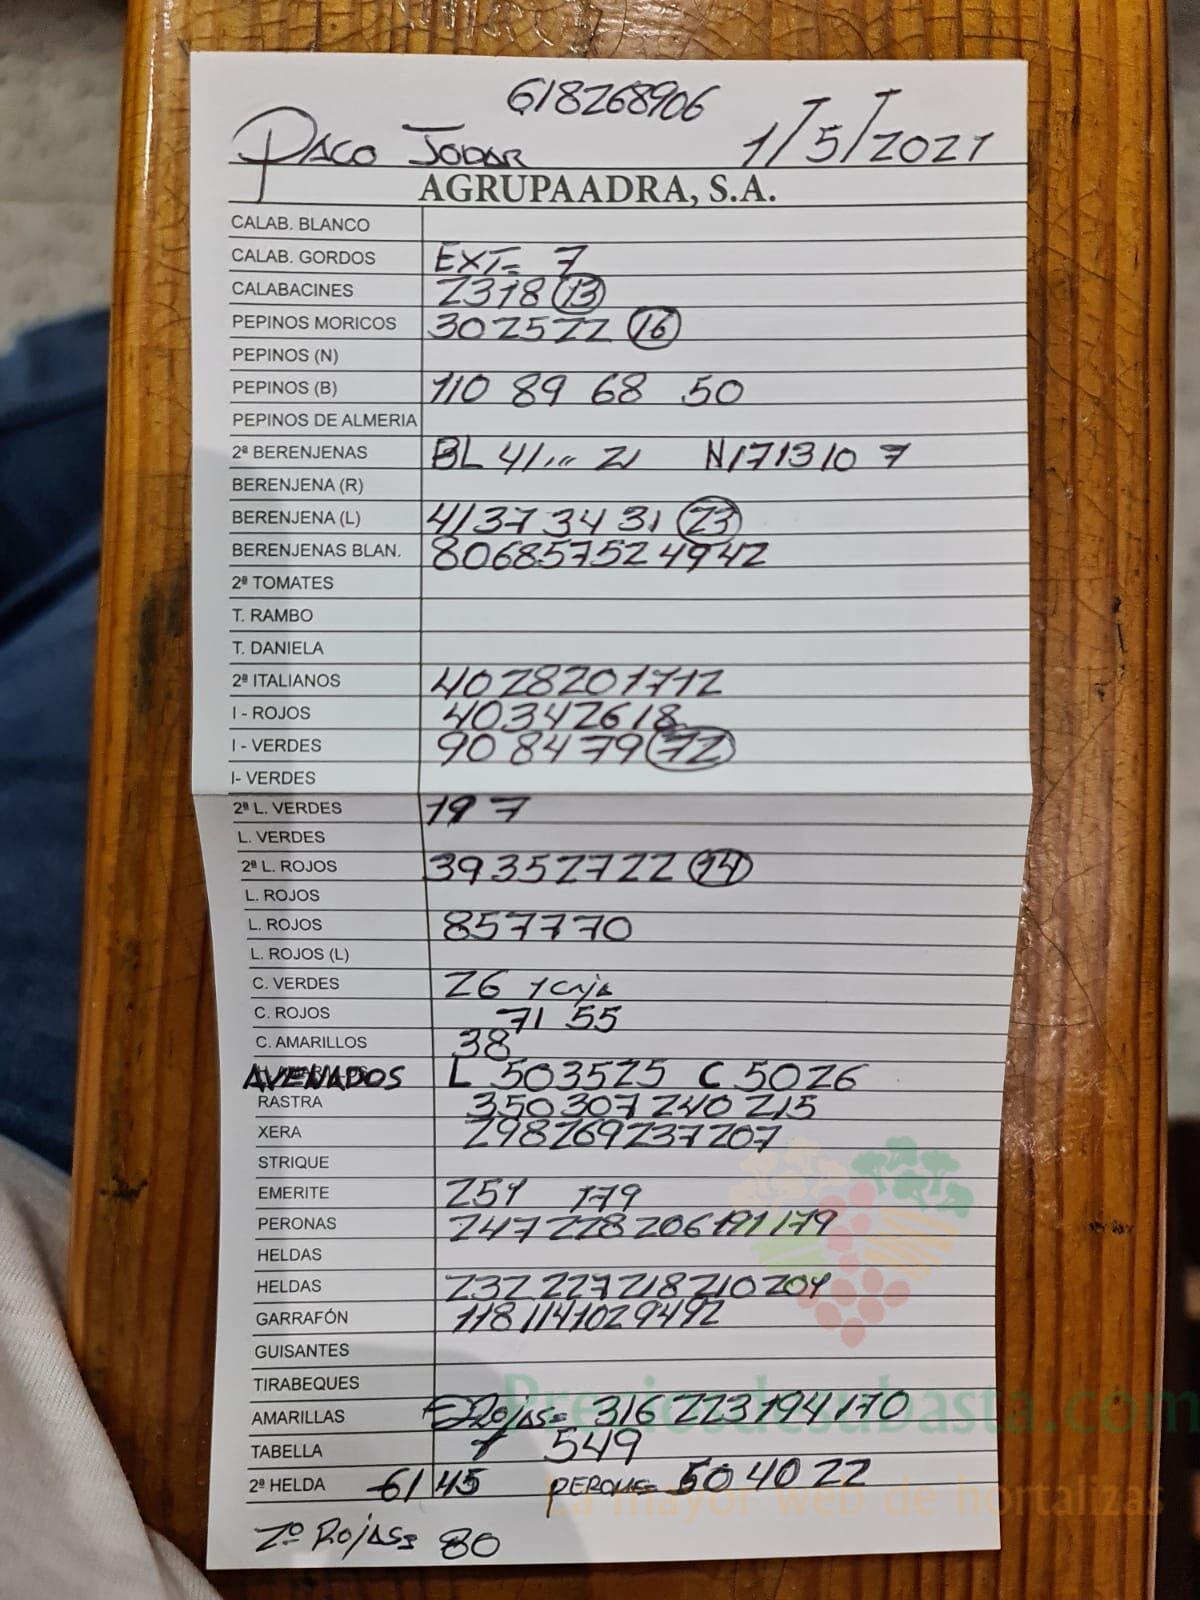 618268906
PACO JODAR 1/5/2021
AGRUPAADRA, S.A.
CALAB. BLANCO
CALAB. GORDOS EXT= 7
CALABACINES 23 18 13
PEPINOS MORICOS 30 25 22 16
PEPINOS (N)
PEPINOS (B) 110 89 68 50
PEPINOS DE ALMERIA
2ª BERENJENAS BL 41 ... 21 N 17 13 10 7
BERENJENA (R)
BERENJENA (L) 41 37 34 31 23
BERENJENAS BLAN. 80 68 57 52 49 42
2ª TOMATES
T. RAMBO
T. DANIELA
2ª ITALIANOS 40 28 20 17 12
I - ROJOS 40 34 26 18
I - VERDES 90 84 79 72
I- VERDES
2ª L. VERDES 19 7
L. VERDES
2ª L. ROJOS 39 35 27 22 14
L. ROJOS
L. ROJOS 85 77 70
L. ROJOS (L)
C. VERDES 26 1 caja
C. ROJOS 71 55
C. AMARILLOS 38
AVENADOS L 50 35 25 C 50 26
RASTRA 350 307 240 215
XERA 298 269 237 207
STRIQUE
EMERITE 251 179
PERONAS 247 228 206 191 179
HELDAS
HELDAS 232 227 218 210 201
GARRAFÓN 118 114 102 94 92
GUISANTES
TIRABEQUES
AMARILLAS ROJAS= 316 223 194 170
TABELLA 549
2ª HELDA 61 45 PERONA= 50 40 22
2º ROJAS= 80
Preciosdesubasta.com
La mayor web de hortalizas